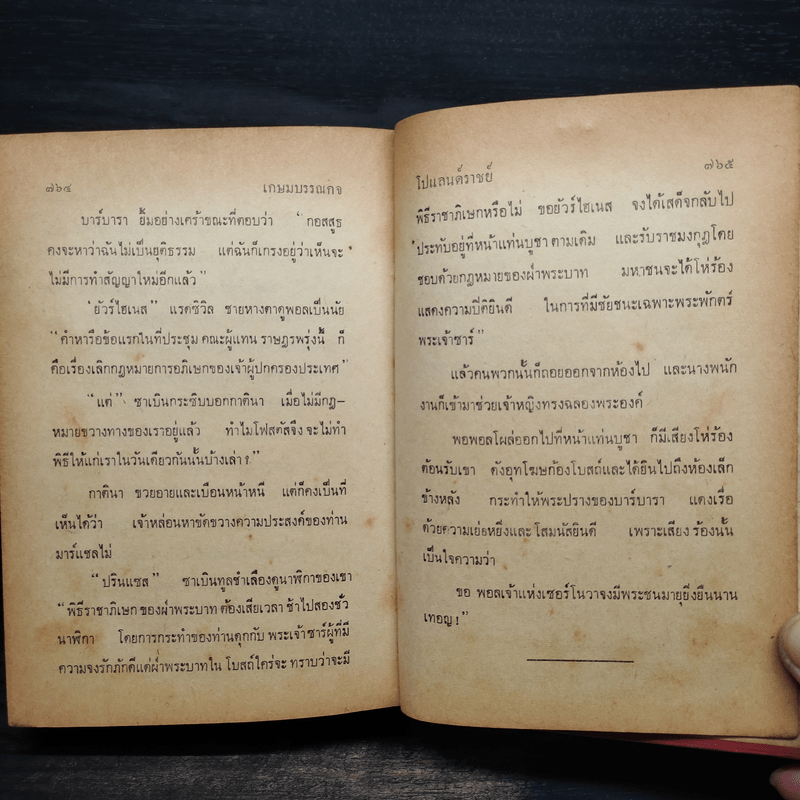 ๗๖๔ เกษมบรรณกิจ
บาร์บารา ยิ้มอย่างเศร้าขณะที่ตอบว่า “กอสสูธ
คงจะหาว่าฉันไม่เป็นยุติธรรม แต่ฉันก็เกรงอยู่ว่าเห็นจะ
ไม่มีการทำสัญญาใหม่อีกแล้ว”
‘ยัวร์ไฮเนส” แรดซิวิล ชายหางตาดูพอลเป็นนัย
“คำหารือข้อแรกในที่ประชุม คณะผู้แทน ราษฎรพรุ่งนี้ ก็
คือเรื่องเลิกกฎหมายการอภิเษกของเจ้าผู้ปกครองประเทศ”
“แต่” ซาเบินกระซิบบอกกาตินา เมื่อไม่มีกฎ–
หมายขวางทางของเราอยู่แล้ว ทำไมโฟสตัสจึง จะไม่ทำ
พิธีให้แก่เราในวันเดียวกันนั้นบ้างเล่า ?”
กาตินา ขวยอายและเบือนหน้าหนี แต่ก็คงเป็นที่
เห็นได้ว่า เจ้าหล่อนหาขัดขวางความประสงค์ของท่าน
มาร์แชลไม่
“ปรินแซส” ซาเบินทูลชำเลืองดูนาฬิกาของเขา
“พิธีราชาภิเษก ของฝ่าพระบาท ต้องเสียเวลา ช้าไปสองชั่ว
นาฬิกา โดยการกระทำของท่านดุกกับ พระเจ้าซาร์ผู้ที่มี
ความจงรักภักดีแด่ฝ่าพระบาทใน โบสถ์ใคร่จะ ทราบว่าจะมี
โปแลนด์ราชย์ ๗๖๕
พิธีราชาภิเษกหรือไม่ ขอยัวร์ไฮเนส จงได้เสด็จกลับไป
ประทับอยู่ที่หน้าแท่นบูชา ตามเดิม และรับราชมงกุฎโดย
ชอบด้วยกฎหมายของฝ่าพระบาท มหาชนจะได้โห่ร้อง
แสดงความปิติยินดี ในการที่มีชัยชนะเฉพาะพระพักตร์
พระเจ้าซาร์”
แล้วคนพวกนั้นก็ถอยออกจากห้องไป และนางพนัก
งานก็เข้ามาช่วยเจ้าหญิงทรงฉลองพระองค์
พอพอลโผล่ออกไปที่หน้าแท่นบูชา ก็มีเสียงโห่ร้อง
ต้อนรับเขา ดังอุทโฆษก้องโบสถ์และได้ยินไปถึงห้องเล็ก
ข้างหลัง กระทำให้พระปรางของบาร์บารา แดงเรื่อ
ด้วยความเย่อหยิ่งและ โสมนัสยินดี เพราะเสียง ร้องนั้น
เป็นใจความว่า
ขอ พอลเจ้าแห่งเซอร์โนวาจงมีพระชนมายุยิ่งยืนนาน
เทอญ !”